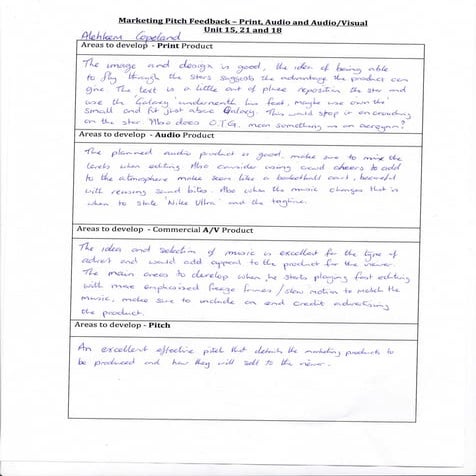 Marketing Pitch Feedback – Print, Audio and Audio/Visual
Unit 15, 21 and 18
Copeland
Areas to develop - Print Product
The image and design is good, the idea of being able
to fly through the stars suggests the advantage the product can
give. The text is a little out of place reposition the star and
use the 'Galaxy' underneath his feet, maybe use own the
small and fit just above Galaxy. This would stop it overcrowding
on the star. Also does O.T.G. mean something as an acronym?
Areas to develop - Audio Product
The planned audio product is good, make sure to mix the
levels when editing. Also consider using crowd cheers to add
to the atmosphere make seem like a basketball court, be careful
with reusing sound bites. Also when the music changes that is
when to state 'Nike Ultra' and the tagline.
Areas to develop - Commercial A/V Product
The idea and selection of music is excellent for the type of
advert and would add appeal to the product for the viewer.
The main areas to develop when he starts playing fast editing
with more emphasised freeze frames / slow motion to match the
music, make sure to include an end credit advertising
the product.
Areas to develop - Pitch
An excellent effective pitch that details the marketing products to
be produced and how they will sell to the viewer.